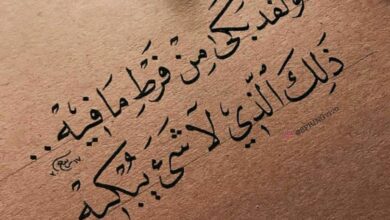 ولقد بكى مِنْ فَرْطِ مَا فِيهِ..
ذَلِكَ الَّذِي لَا شَيْءَ يُبْكِيهِ